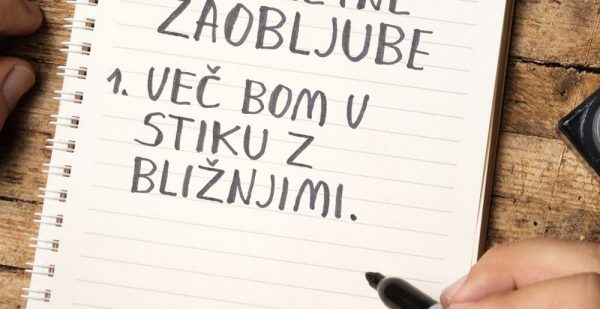 ZAOBLJUBE
1. VEČ BOM V
STIKU Z
BLIŽNJIMI.